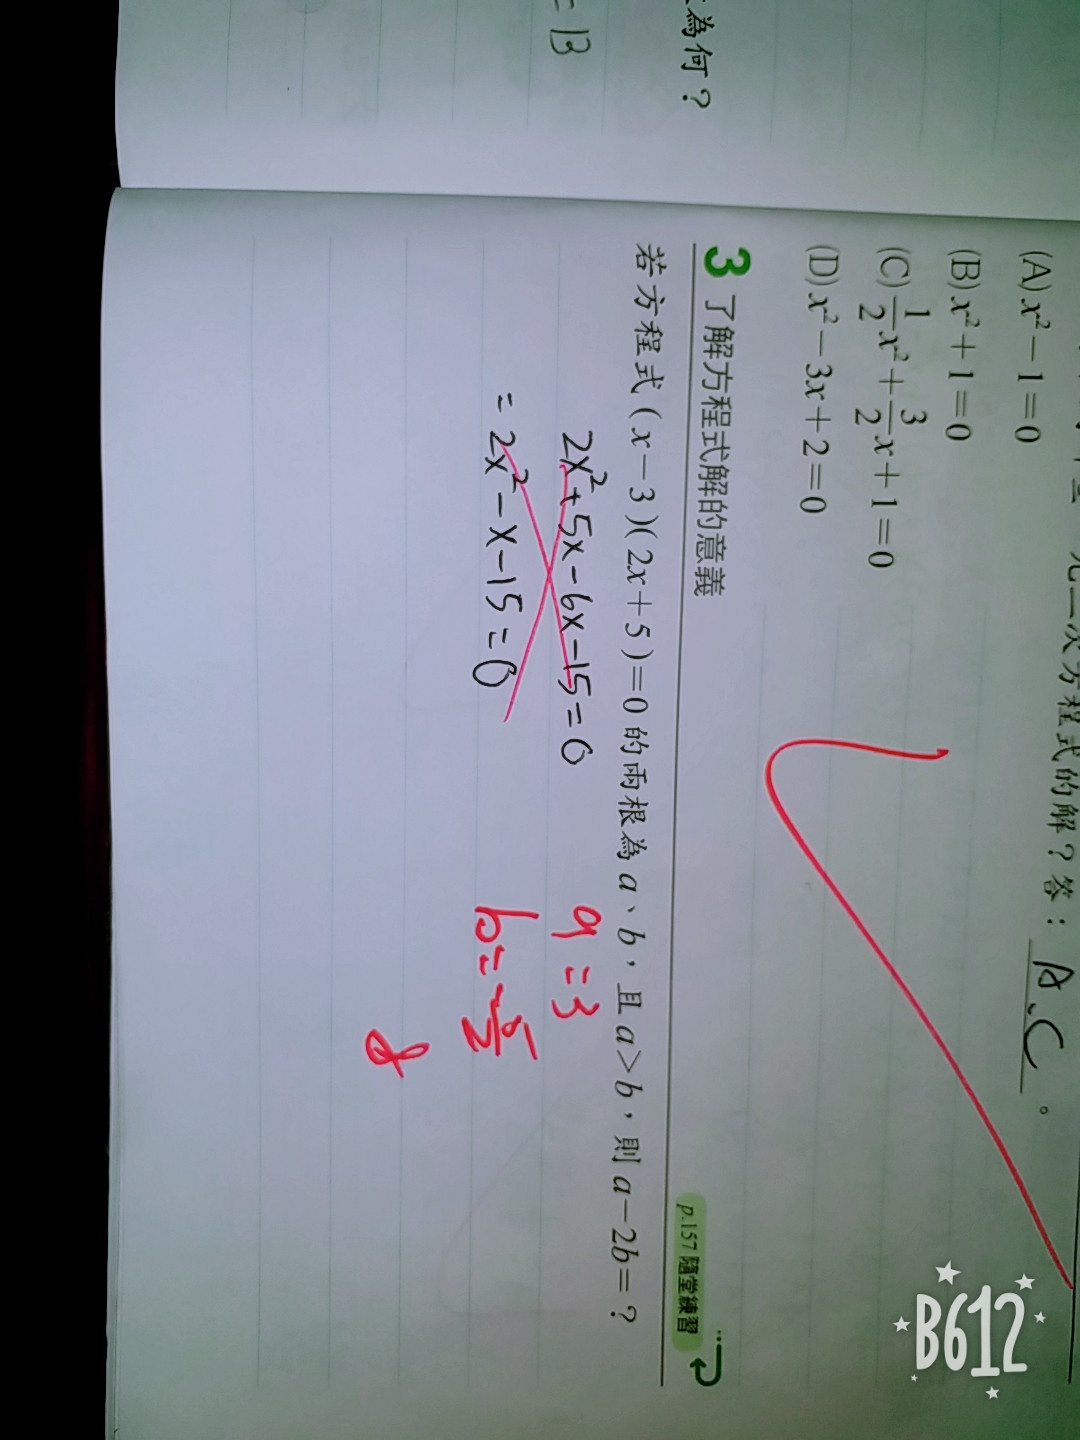 為何？
= 13
一元二次方程式的解？答：A、C。
(A) x² − 1 = 0
(B) x² + 1 = 0
(C) 1/2 x² + 3/2 x + 1 = 0
(D) x² − 3x + 2 = 0
3 了解方程式解的意義
p.157 隨堂練習
若方程式 (x − 3)(2x + 5) = 0 的兩根為 a、b，且 a > b，則 a − 2b = ？
2x² + 5x − 6x − 15 = 0
= 2x² − x − 15 = 0
a = 3
b = −5/2
8
B612